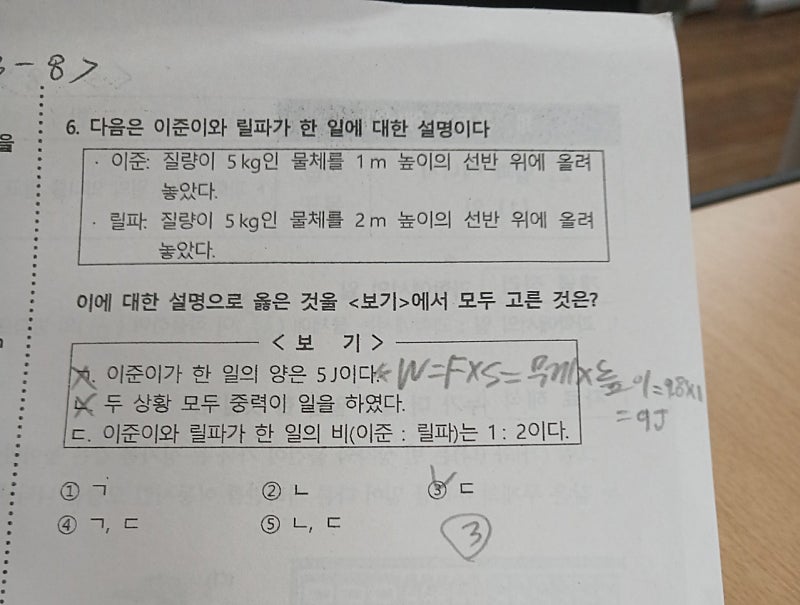 - 8>
을
6. 다음은 이준이와 릴파가 한 일에 대한 설명이다
· 이준: 질량이 5kg인 물체를 1m 높이의 선반 위에 올려
놓았다.
· 릴파: 질량이 5kg인 물체를 2m 높이의 선반 위에 올려
놓았다.
이에 대한 설명으로 옳은 것을 <보기>에서 모두 고른 것은?
< 보 기 >
ㄱ. 이준이가 한 일의 양은 5J이다. * W=F×S= 무게×높이=9.8×1
=9J
ㄴ. 두 상황 모두 중력이 일을 하였다.
ㄷ. 이준이와 릴파가 한 일의 비(이준 : 릴파)는 1 : 2이다.
① ㄱ ② ㄴ ③ ㄷ
④ ㄱ, ㄷ ⑤ ㄴ, ㄷ
③